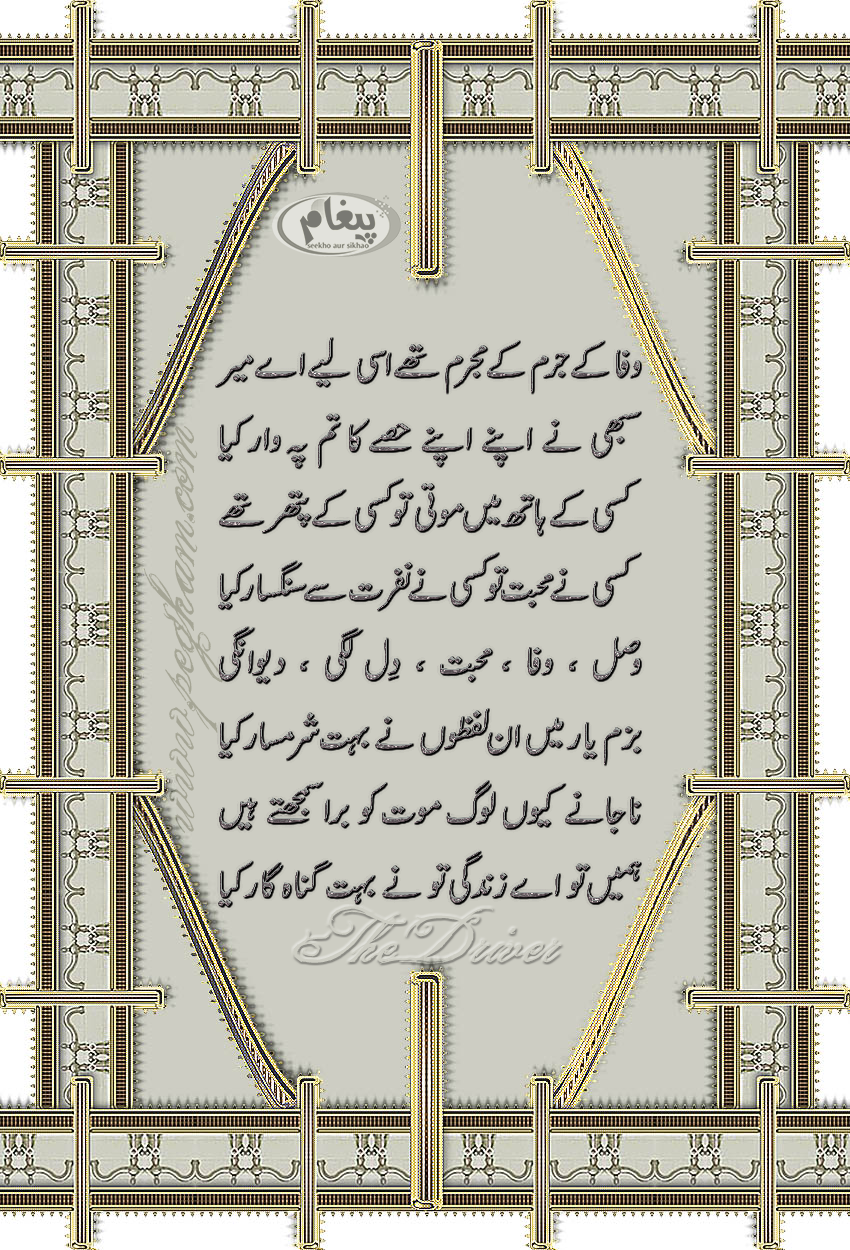 پیغام
seekho aur sikhao
وفا کے جرم کے مجرم تھے اسی لیے اے میر
سبھی نے اپنے اپنے حصے کا تم پہ وار کیا
کسی کے ہاتھ میں موتی تو کسی کے پتھر تھے
کسی نے محبت تو کسی نے نفرت سے سنگسار کیا
وصل ، وفا ، محبت ، دِل لگی ، دیوانگی
بزم یار میں ان لفظوں نے بہت شرمسار کیا
ناجانے کیوں لوگ موت کو برا سمجھتے ہیں
ہمیں تو اے زندگی تو نے بہت گناہ گار کیا
The Driver
www.pegham.com